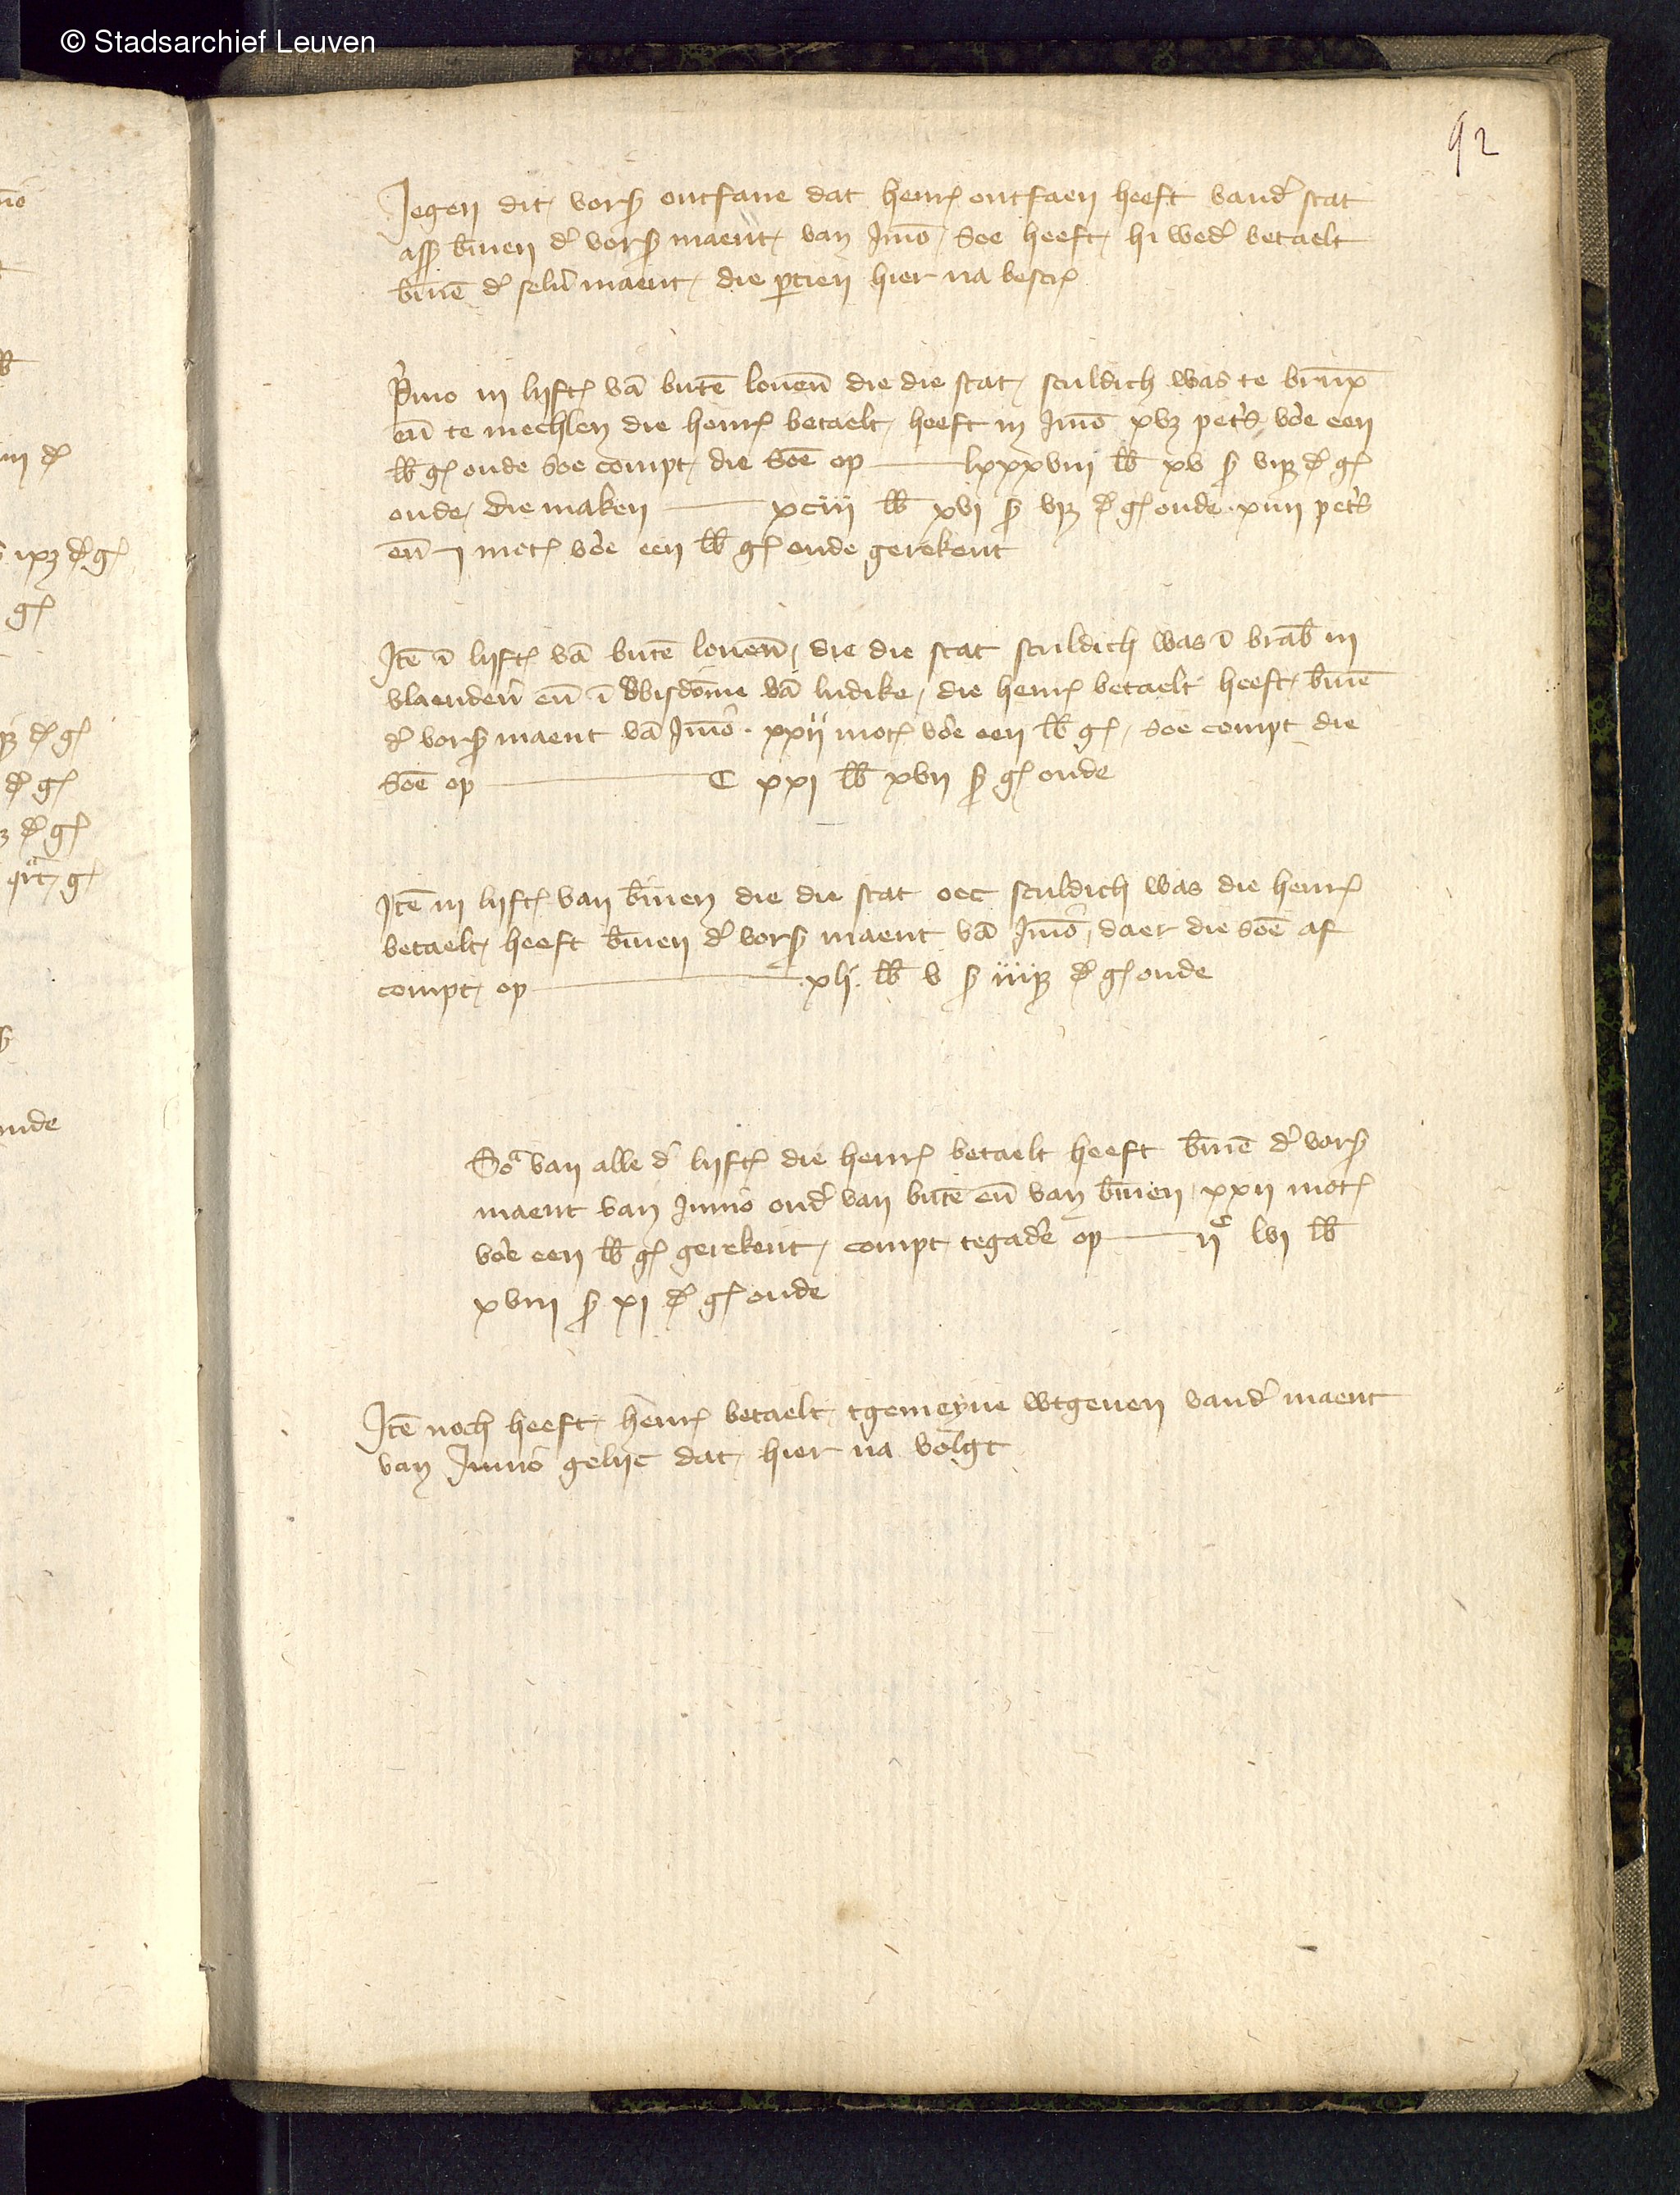 © Stadsarchief Leuven
92
Jegen dit vors ontfane dat henr ontfaen heeft vand' stat
ass b̄inen d' vors maent van Junio soe heeft hi wed' betaelt
b̄inē d' selu' maent die ptien hier na bescr
P'mo in lijft vā butē louen̄ die die stat sculdich was te brux̄
en̄ te mechlen die henr betaelt heeft in Junio xvꝫ pet's voe een
lb̄ g oude soe compt die soē op lxxxviii lb̄ xv s viꝫ d g
oude die maken xciii lb̄ xvi s vꝫ d g oude xiiii pet's
en̄ i mot voe een lb̄ g oude gerekent
Jtē ī lijft vā butē louen̄ die die stat sculdich was ī brab̄ in
vlaender' en̄ ī bisdōme vā ludike die henr betaelt heeft b̄inē
d' vors maent vā Junio xxii mot voe een lb̄ g soe compt die
soē op C xxi lb̄ xvii s g oude
Jtē in lijft van b̄inen die die stat oec sculdich was die henr
betaelt heeft b̄inen d' vors maent vā Junio daer die soē af
compt op xlj lb̄ v s iiiꝫ d g oude
Soᵃ van alle d' lijft die henr betaelt heeft b̄inē d' vors
maent van Junio ond' van butē en̄ van b̄inen xxii mot
voe een lb̄ g gerekent compt tegad'e op iiᶜ lvi lb̄
xviii s xi d g oude
Jtē noch heeft henr betaelt tgemeyne wtgeuen vand' maent
van Junio gelijc dat hier na volgt